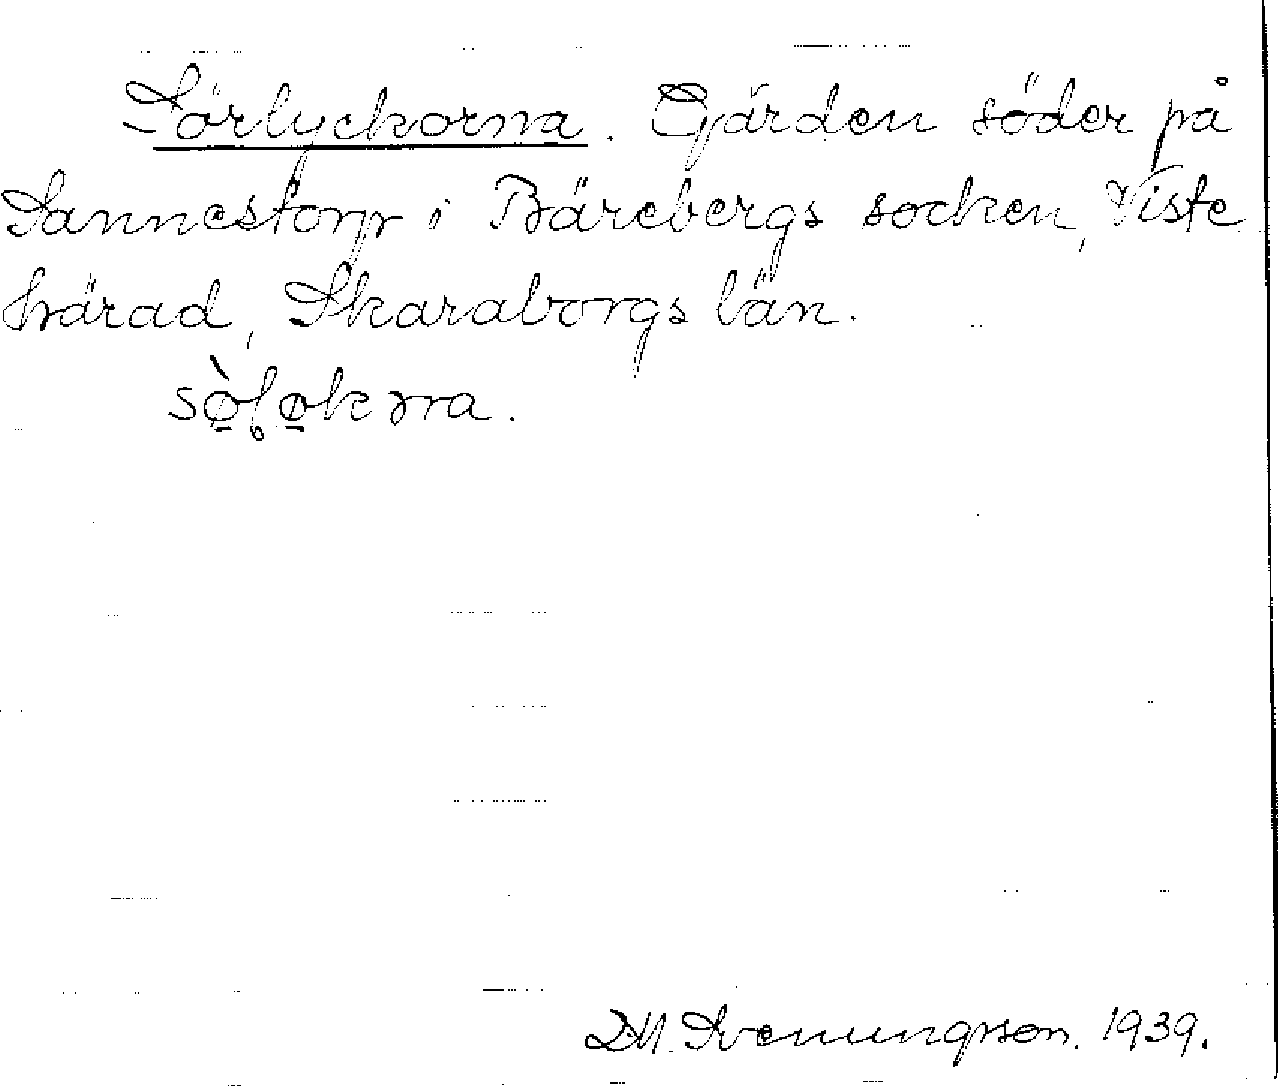 Sörlyckorna. Gärden söder på
Sannestorp i Bärebergs socken, Viste
härad, Skaraborgs län.
D.N. Svenungsson. 1939.